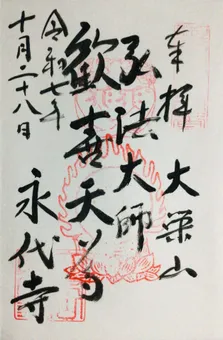 奉拝
大榮山
弘法大師
歡喜天
永代寺
令和七年
十月二十八日